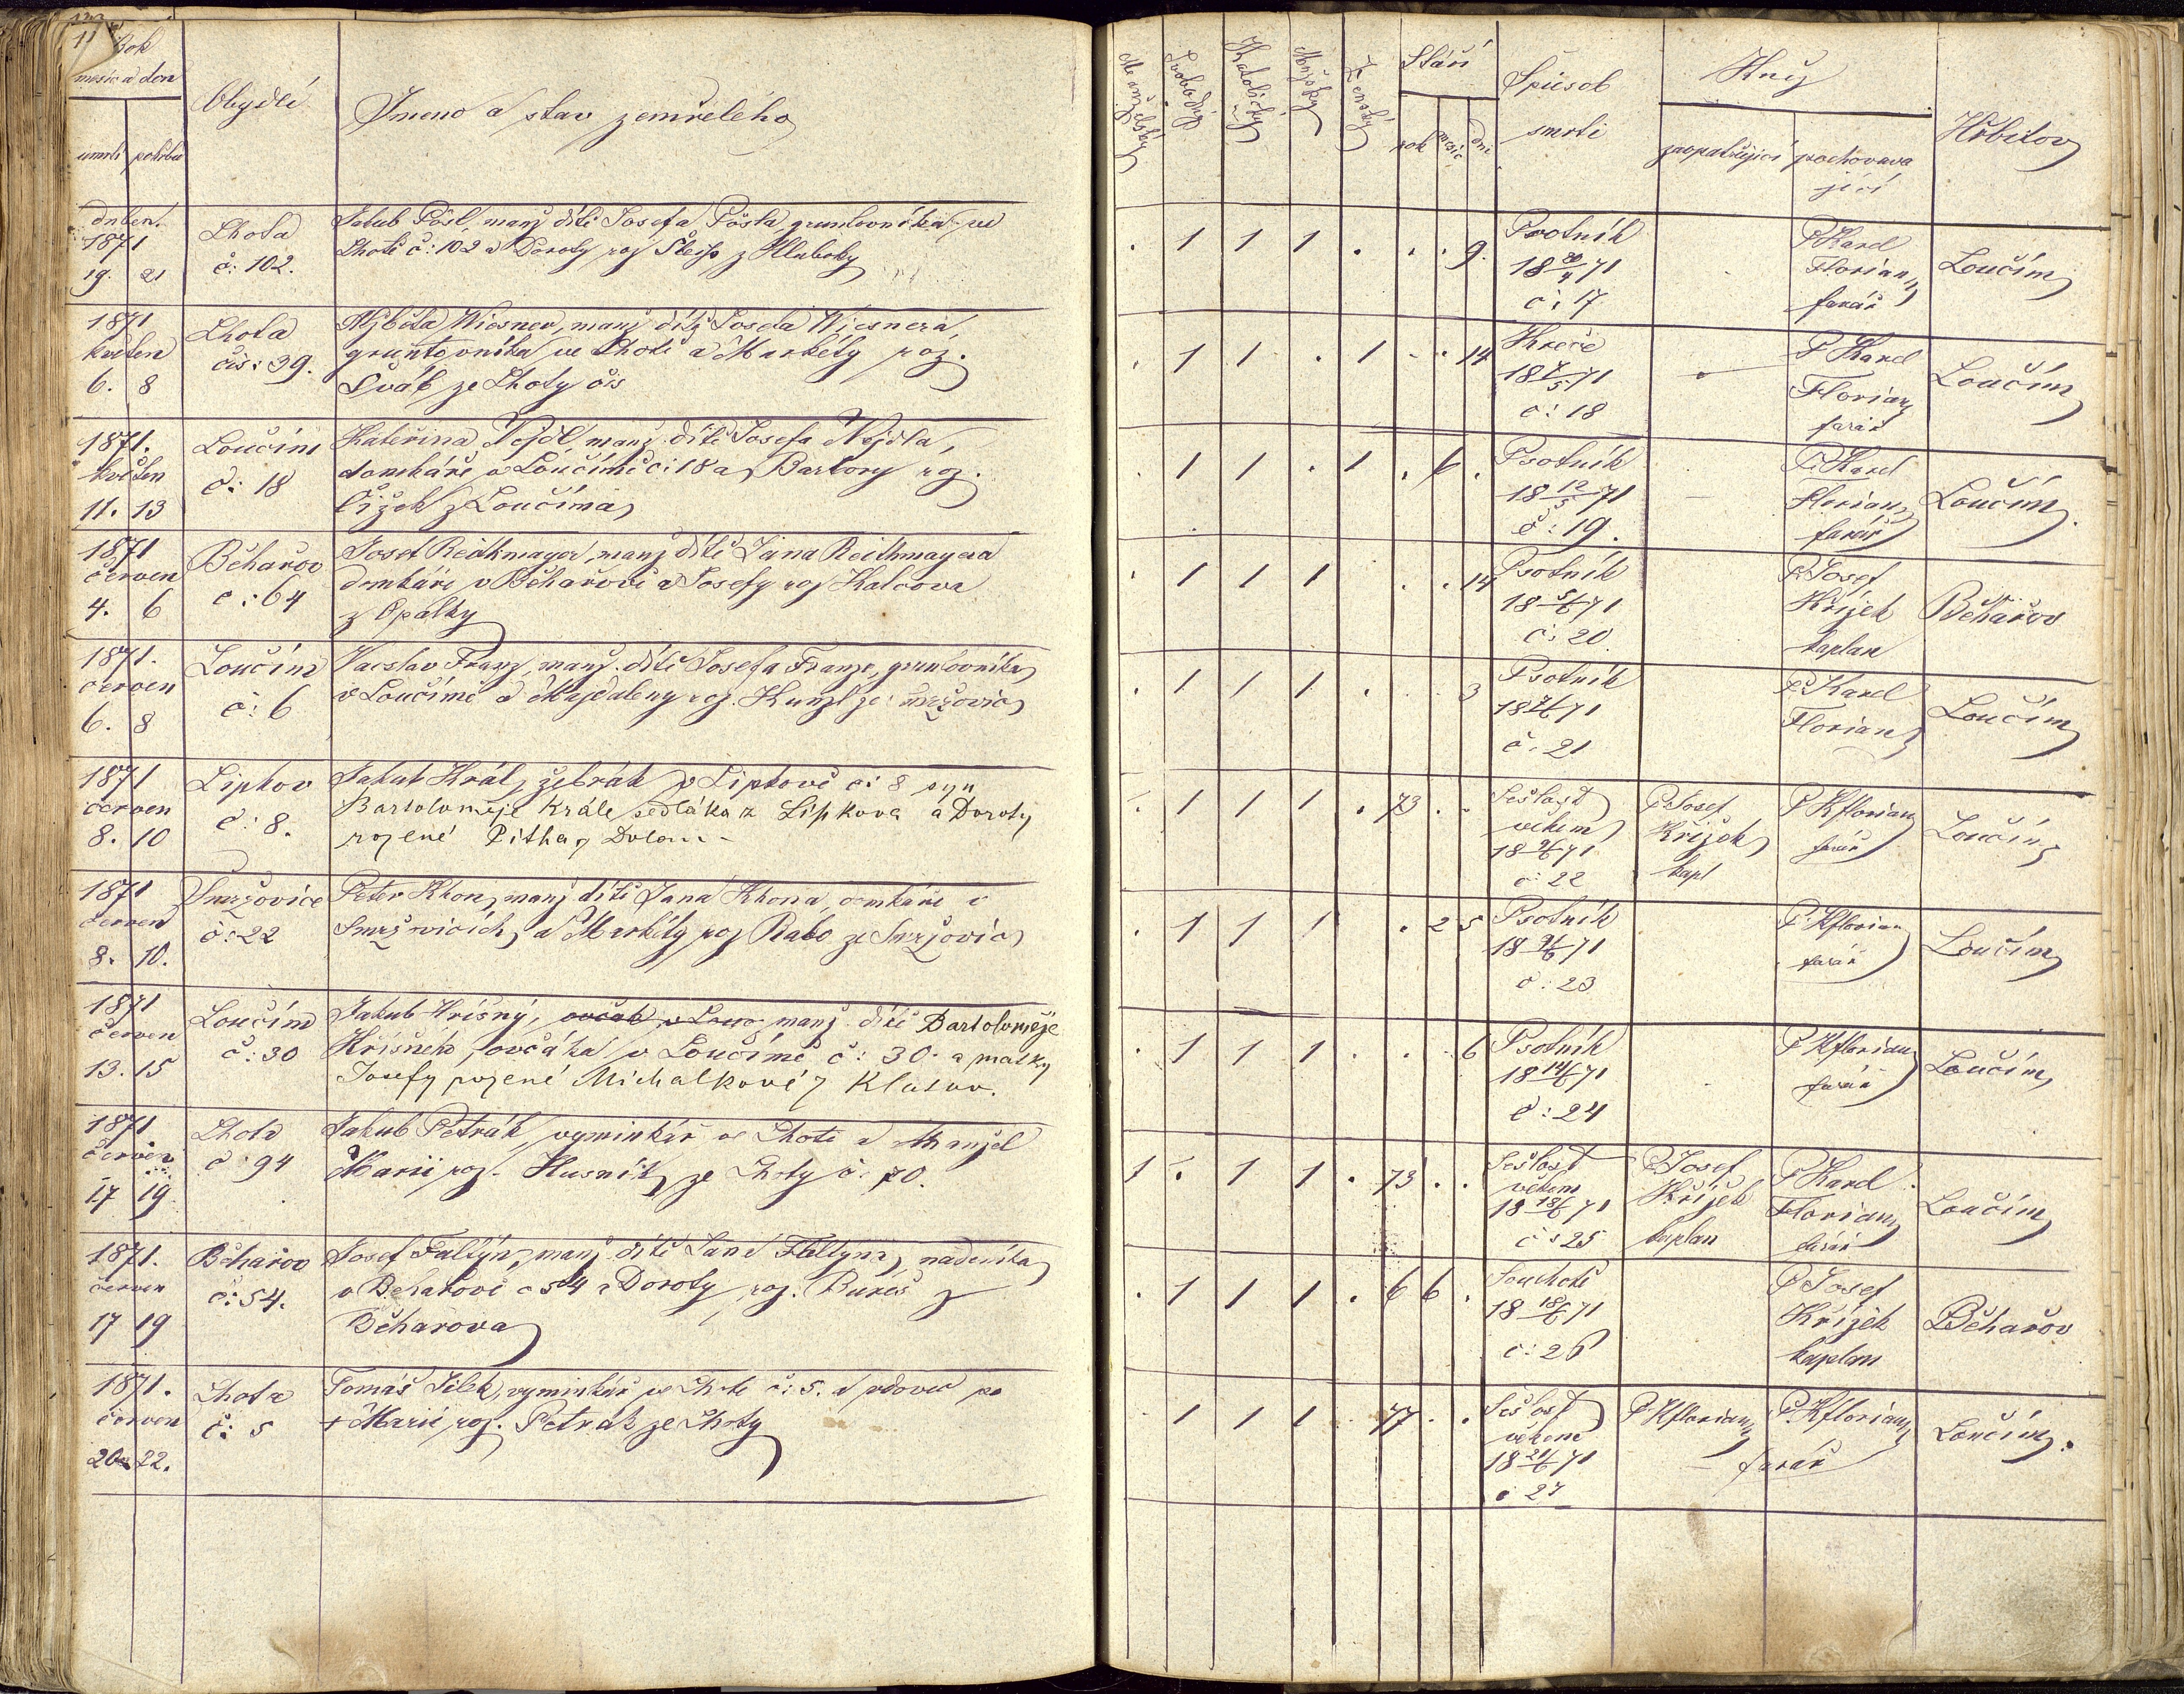 Rok
měsíc a den
úmrtí pohřbu
Obydlí
Jmeno a stav zemřelého
Manželský
Svobodný
Katolický
Mužský
Ženský
Stáří
rok měsíc dni
Spůsob
smrti
Kněz
zaopatřující pochovava
jící
Hřbitov
duben.
1871
19. 21
Lhota
č: 102.
Jakub Pösl, manž dítě Josefa Pösla, gruntovníka ve
Lhotě č: 102 a Doroty roz z Hluboky
. 1 1 1 . . . 9.
Psotník
18 20/4 71
č: 17
P Karel
Florian
farář
Loučim
1871
květen
6. 8
Lhota
čís: 39.
Alžběta Wiesner, manž dítě Josefa Wiesnera,
gruntovníka ve Lhotě a Markéty roz.
Šváb ze Lhoty čís
. 1 1 . 1 . . 14
Křeče
18 7/5 71
č: 18
P Karel
Florian
farář
Loučim
1871.
květen
11. 13
Loučim
č: 18
Kateřina Nejdl, manž. dítě Josefa Nejdla,
domkáře v Loučimě č: 18 a Barbory roz.
Čížek z Loučima
. 1 1 . 1 . 6 .
Psotník
18 12/5 71
č: 19.
P. Karel
Florian
farář
Loučim.
1871
červen
4. 6
Běhařov
č: 64
Josef Reithmayer, manž dítě Jana Reithmayera
domkáře v Běhařově a Josefy roz Kalcova
z Opálky
. 1 1 1 . . 14
Psotník
18 5/6 71
č: 20.
P. Josef
Křížek
kaplan
Běhařov
1871.
červen
6. 8
Loučim
č: 6
Vácslav Franz, manž. dítě Josefa Franze, gruntovníka
v Loučimě a Magdaleny roz. Kunzl ze Smržovic
. 1 1 1 . . . 3
Psotník
18 7/6 71
č. 21
P. Karel
Florian
Loučim
1871
červen
8. 10
Lipkov
č: 8.
Jakub Král, žebrák v Lipkově č: 8 syn
Bartoloměje Krále sedláka z Lipkova a Doroty
rozené Pitha z
. 1 1 1 . 73 . .
Sešlost
věkem
18 9/6 71
č: 22
P. Josef
Křížek
kapl
P Kflorian
farář
Loučim
1871
červen
8. 10.
Smržovice
č: 22
Peter Khon, manž dítě Jana Khona, domkáře v
Smržovicích, a Markéty roz Rabo ze Smržovic
. 1 1 1 . 2 5
Psotník
18 9/6 71
č: 23
P. Kflorian
farář
Loučim
1871
červen
13. 15
Loučim
č: 30
Jakub Hříšný, ovčák v Louč manž. dítě Bartoloměje
Hříšného, ovčáka v Loučimě č: 30. a matky
Josefy rozené Michalkové z Klatov.
. 1 1 1 . . . 6
Psotník
18 14/6 71
č: 24
P Kflorian
farář
Loučim
1871
červen
17 19
Lhota
č. 94
Jakub Petrák, vyminkář ve Lhotě a Manžel
Marii roz. Husník, ze Lhoty č. 70.
1 . 1 1 . 73 . .
Sešlost
věkem
18 18/6 71
č: 25
P. Josef
Křížek
kaplan
P Karel
Florian
farář
Loučim
1871.
červen
17 19
Běhařov
č: 54.
Josef Faltýn, manž. dítě Jana Faltýna, nádeníka
v Běhařově č 54 a Doroty roz. Bureš z
Běhařova
. 1 1 1 . 6 6 .
Souchotě
18 18/6 71
č: 26
P Josef
Křížek
kaplan
Běhařov
1871.
červen
20. 22.
Lhota
č: 5
Tomáš Jílek, vyminkář ve Lhotě č: 5. a vdovec po
+ Marii, roz. Petrák ze Lhoty
. 1 1 1 . 77 . .
Sešlost
věkem
18 21/6 71
č 27
P Kflorian P. Kflorian
farář
Loučim.